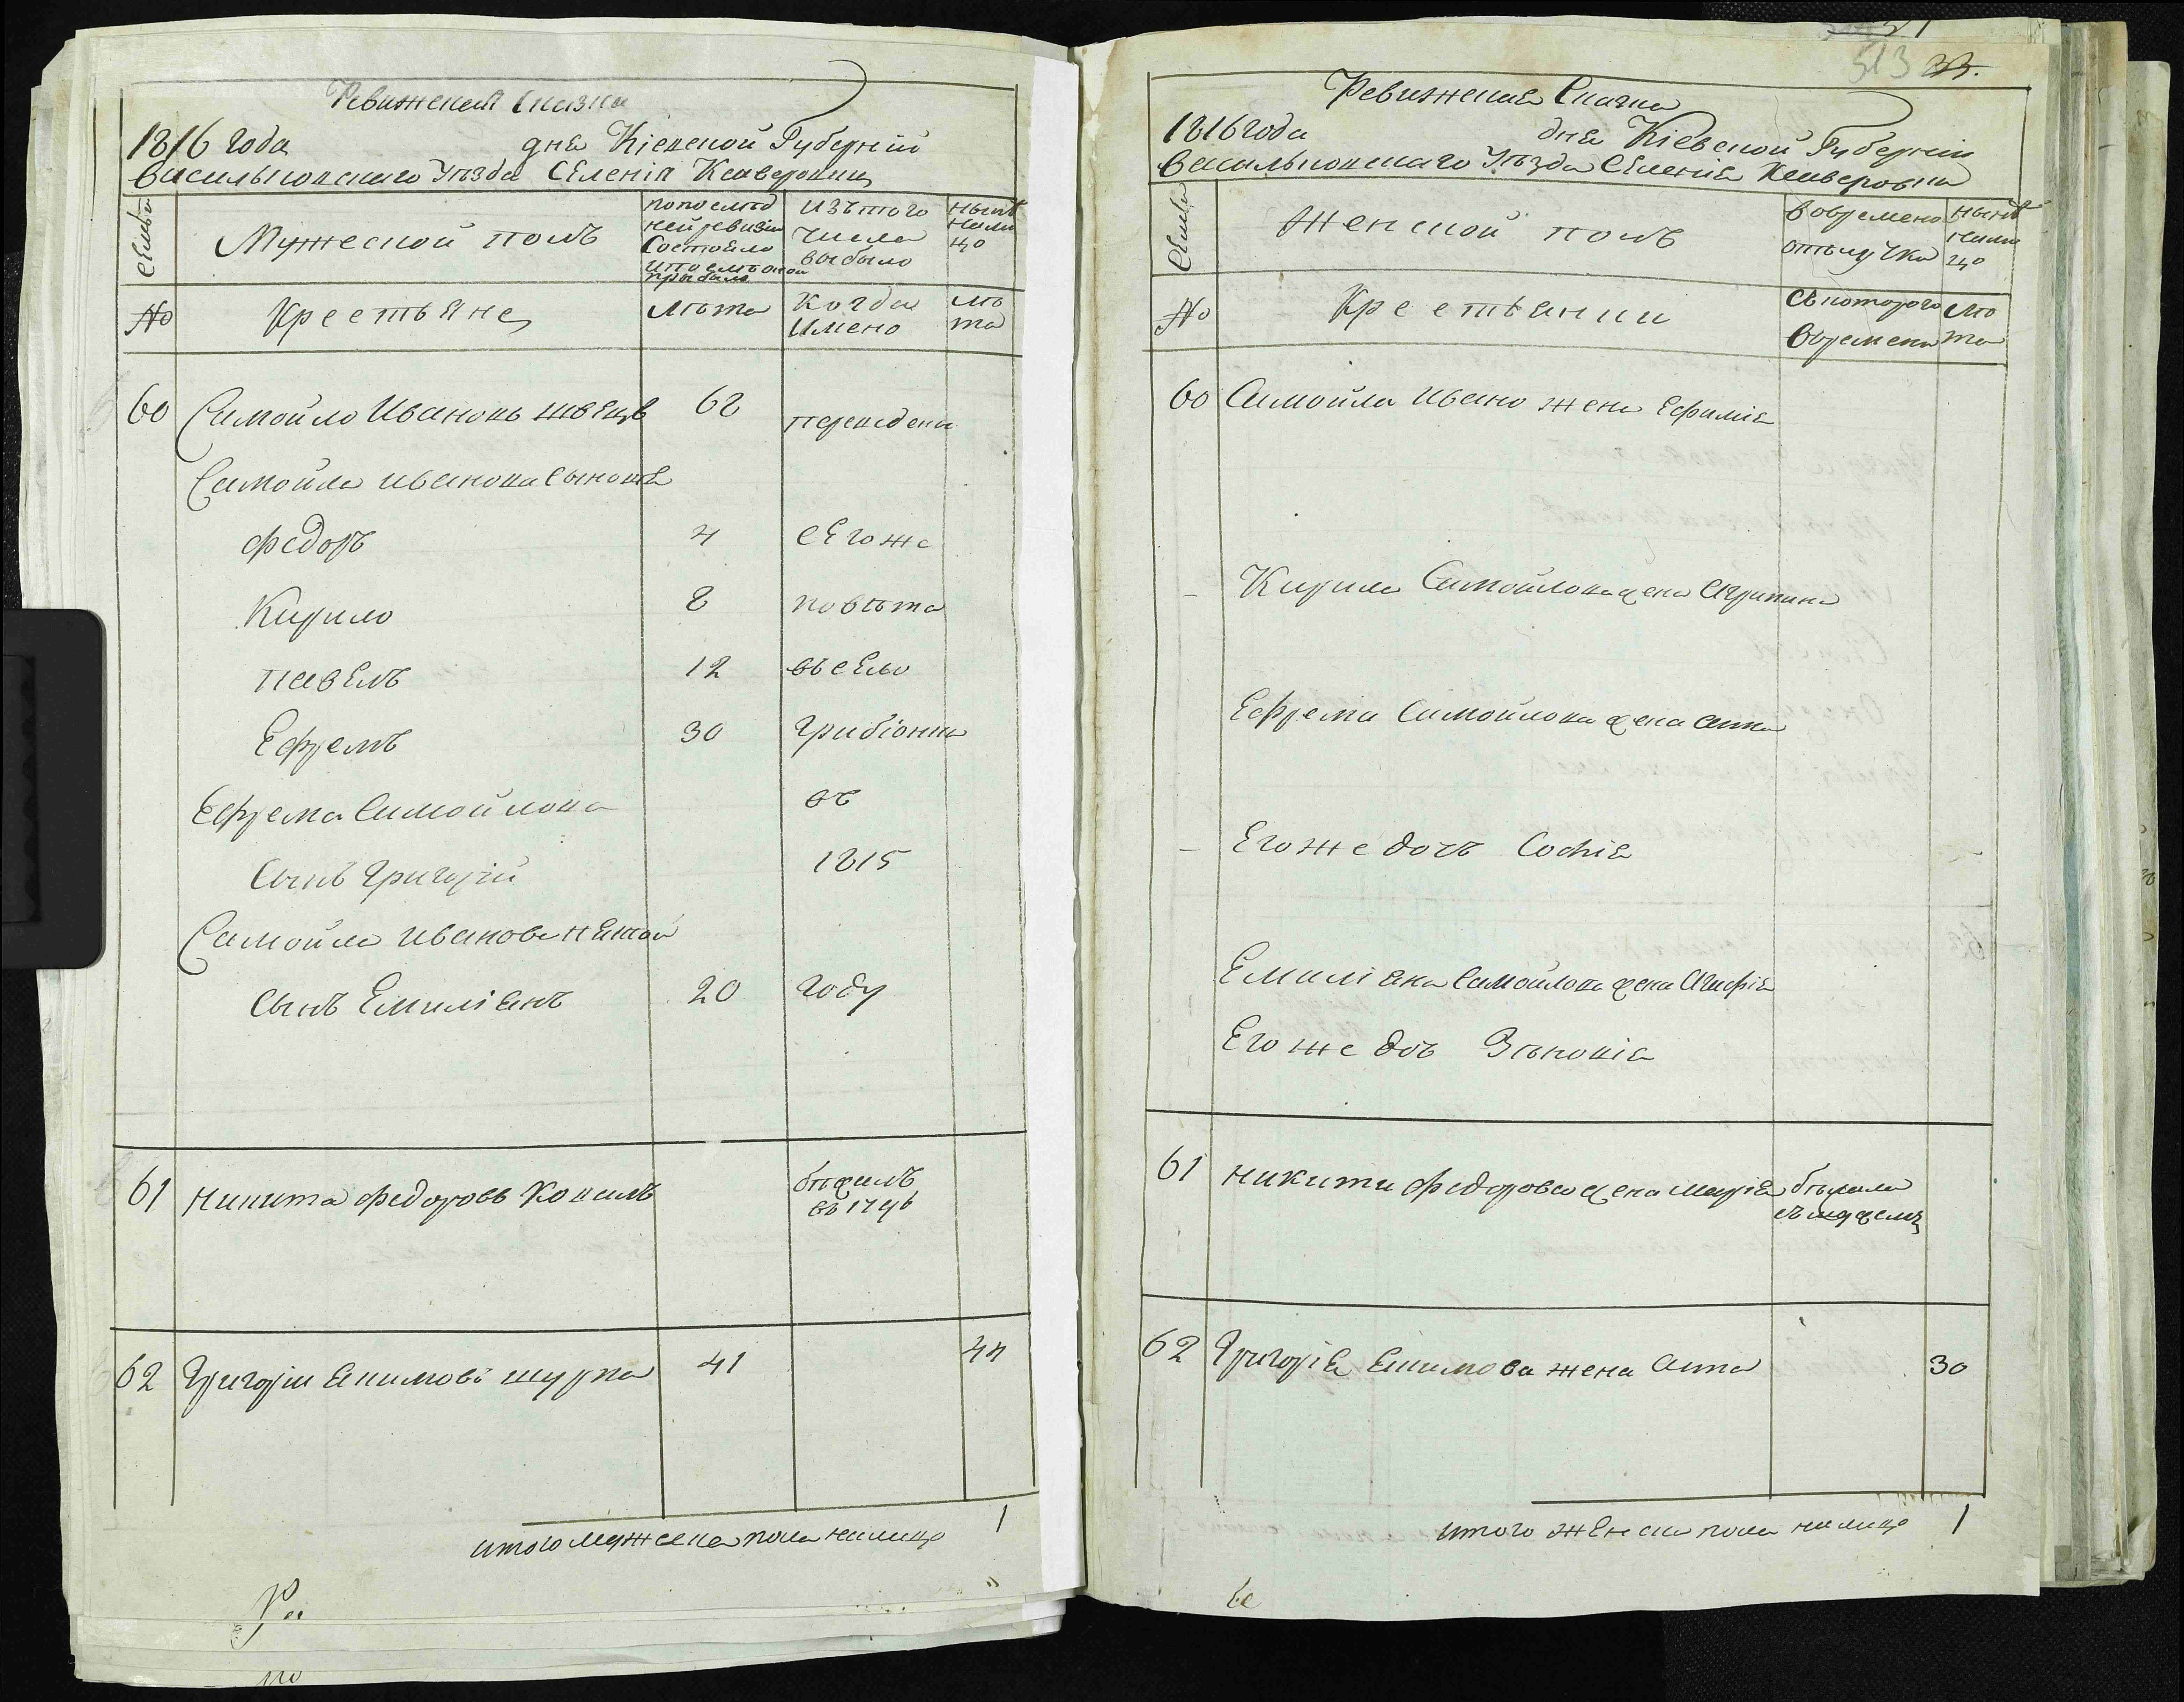 Ревижская Сказка
1816 года дня Кіевской Губерніи
Васильковскаго Уезда Селенія Ксаверовки
Семьи
Мужеской полъ
по послед
ней ревизіи
Состояло
и после оной
прибыло
Изъ того
числа
выбыло
ныне
нали
цо
No
Крестьяне
Лета
Когда
Имено
ле
та
60 Самойло Ивановъ швецъ 68 переведены
Самойла Иванова сыновя
Федоръ 4 сего же
Кирило 8 повета
Павелъ 12 въ село
Ефремъ 30
Ефрема Самойлова въ
Сынъ Григорій 1815
Самойла Иванова
сынъ Емиліянъ 20 году
61 Никита Федоровъ Коваль бежалъ
въ 1796
62 Григорій Якимовъ 41 44
итого мужеска пола налицо 1
513
33.
Ревижская Сказка
1816 года дня Кіевской Губерніи
Васильковскаго Уезда Селенія Ксаверовки
Семьи
Женской полъ
во времено
отълучка
ныне
нали
цо
No
Крестьянки
съ которого
времени
ле
та
60 Самойла Ивано жена Ефимія
Кирила Самойлова жена Агрипина
Ефрема Самойлова жена Анна
Его же дочъ Софія
Емиліяна Самойлова жена Агафія
Его же доч
61 Никити Федорова жена Марія бежала
съ мужемъ
62 Григорія Якимова жена Анна 30
итого женска пола налицо 1